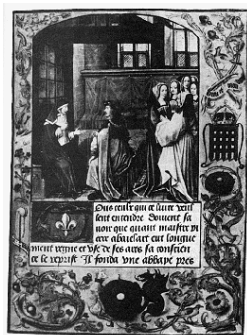 Ous ceulx qui ce liure veul
lent entendre doiuent sa
uoir que quant maistre pi
erre abaielart eut longue
ment regne et vse de ses ars sa conscien
ce le reprist Il fonda vne abbaye pres